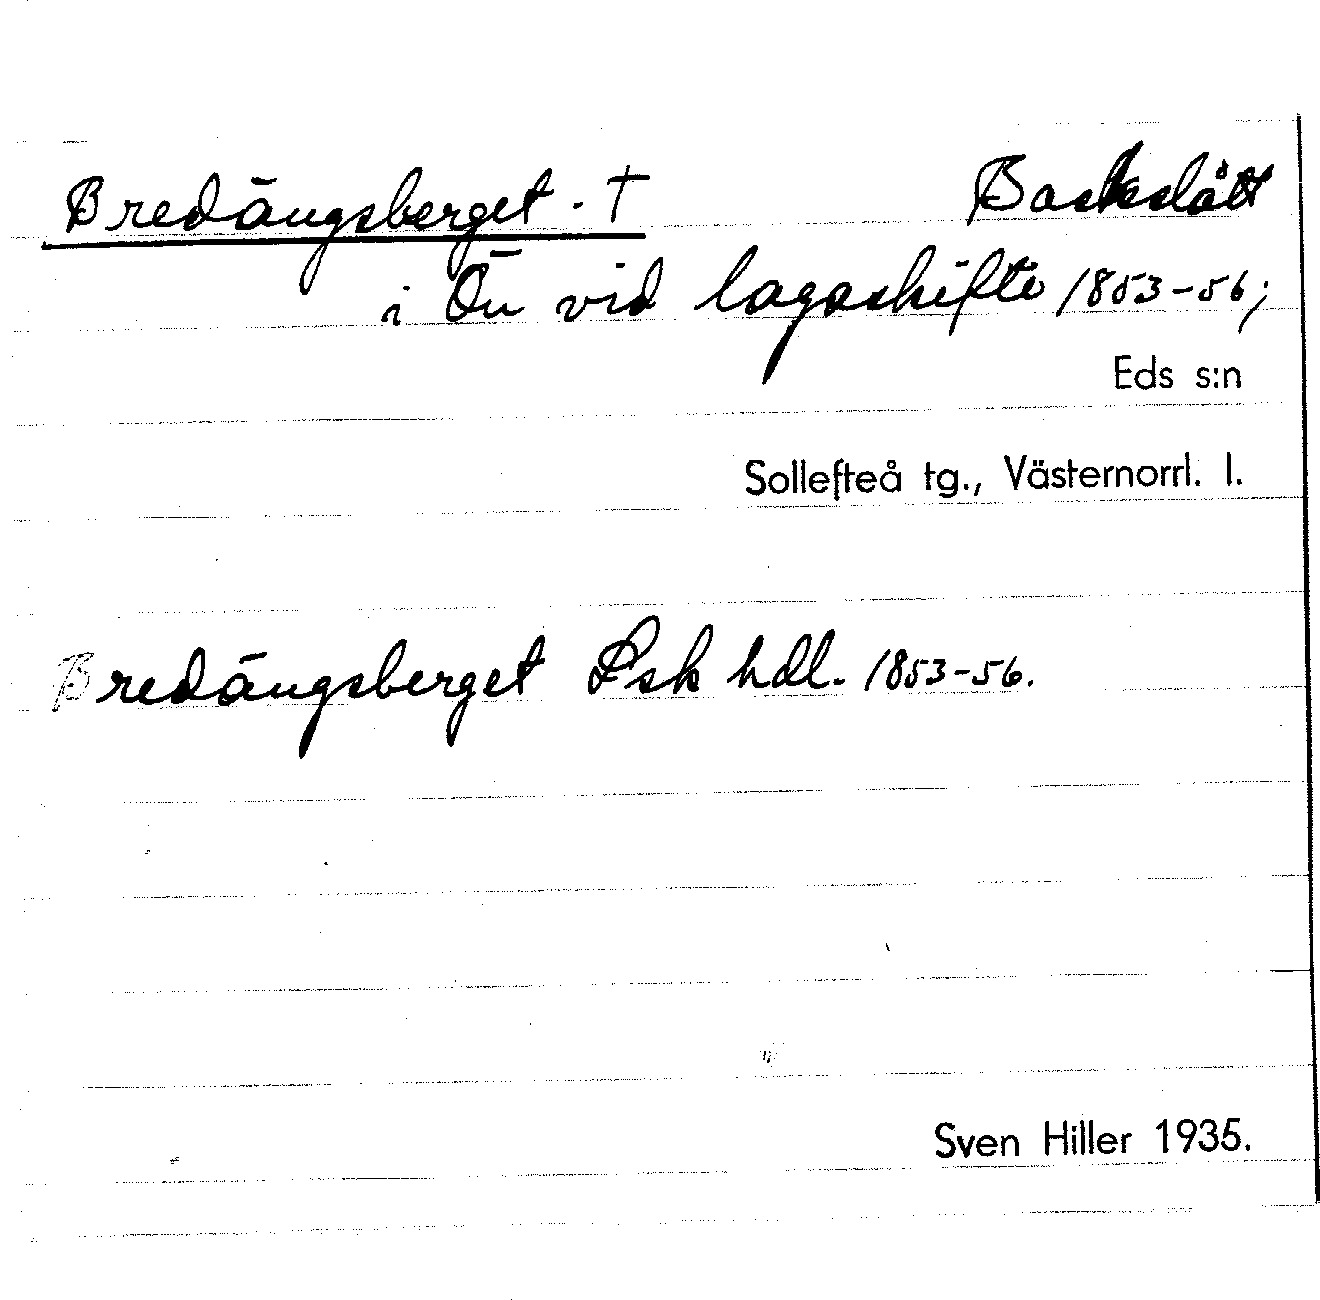 Bredängsberget. † Backslått
i Ön vid lagaskifte 1853-56;
Eds s:n
Sollefteå tg., Västernorrl. l.
Bredängsberget Lsk hdl. 1853-56.
Sven Hiller 1935.